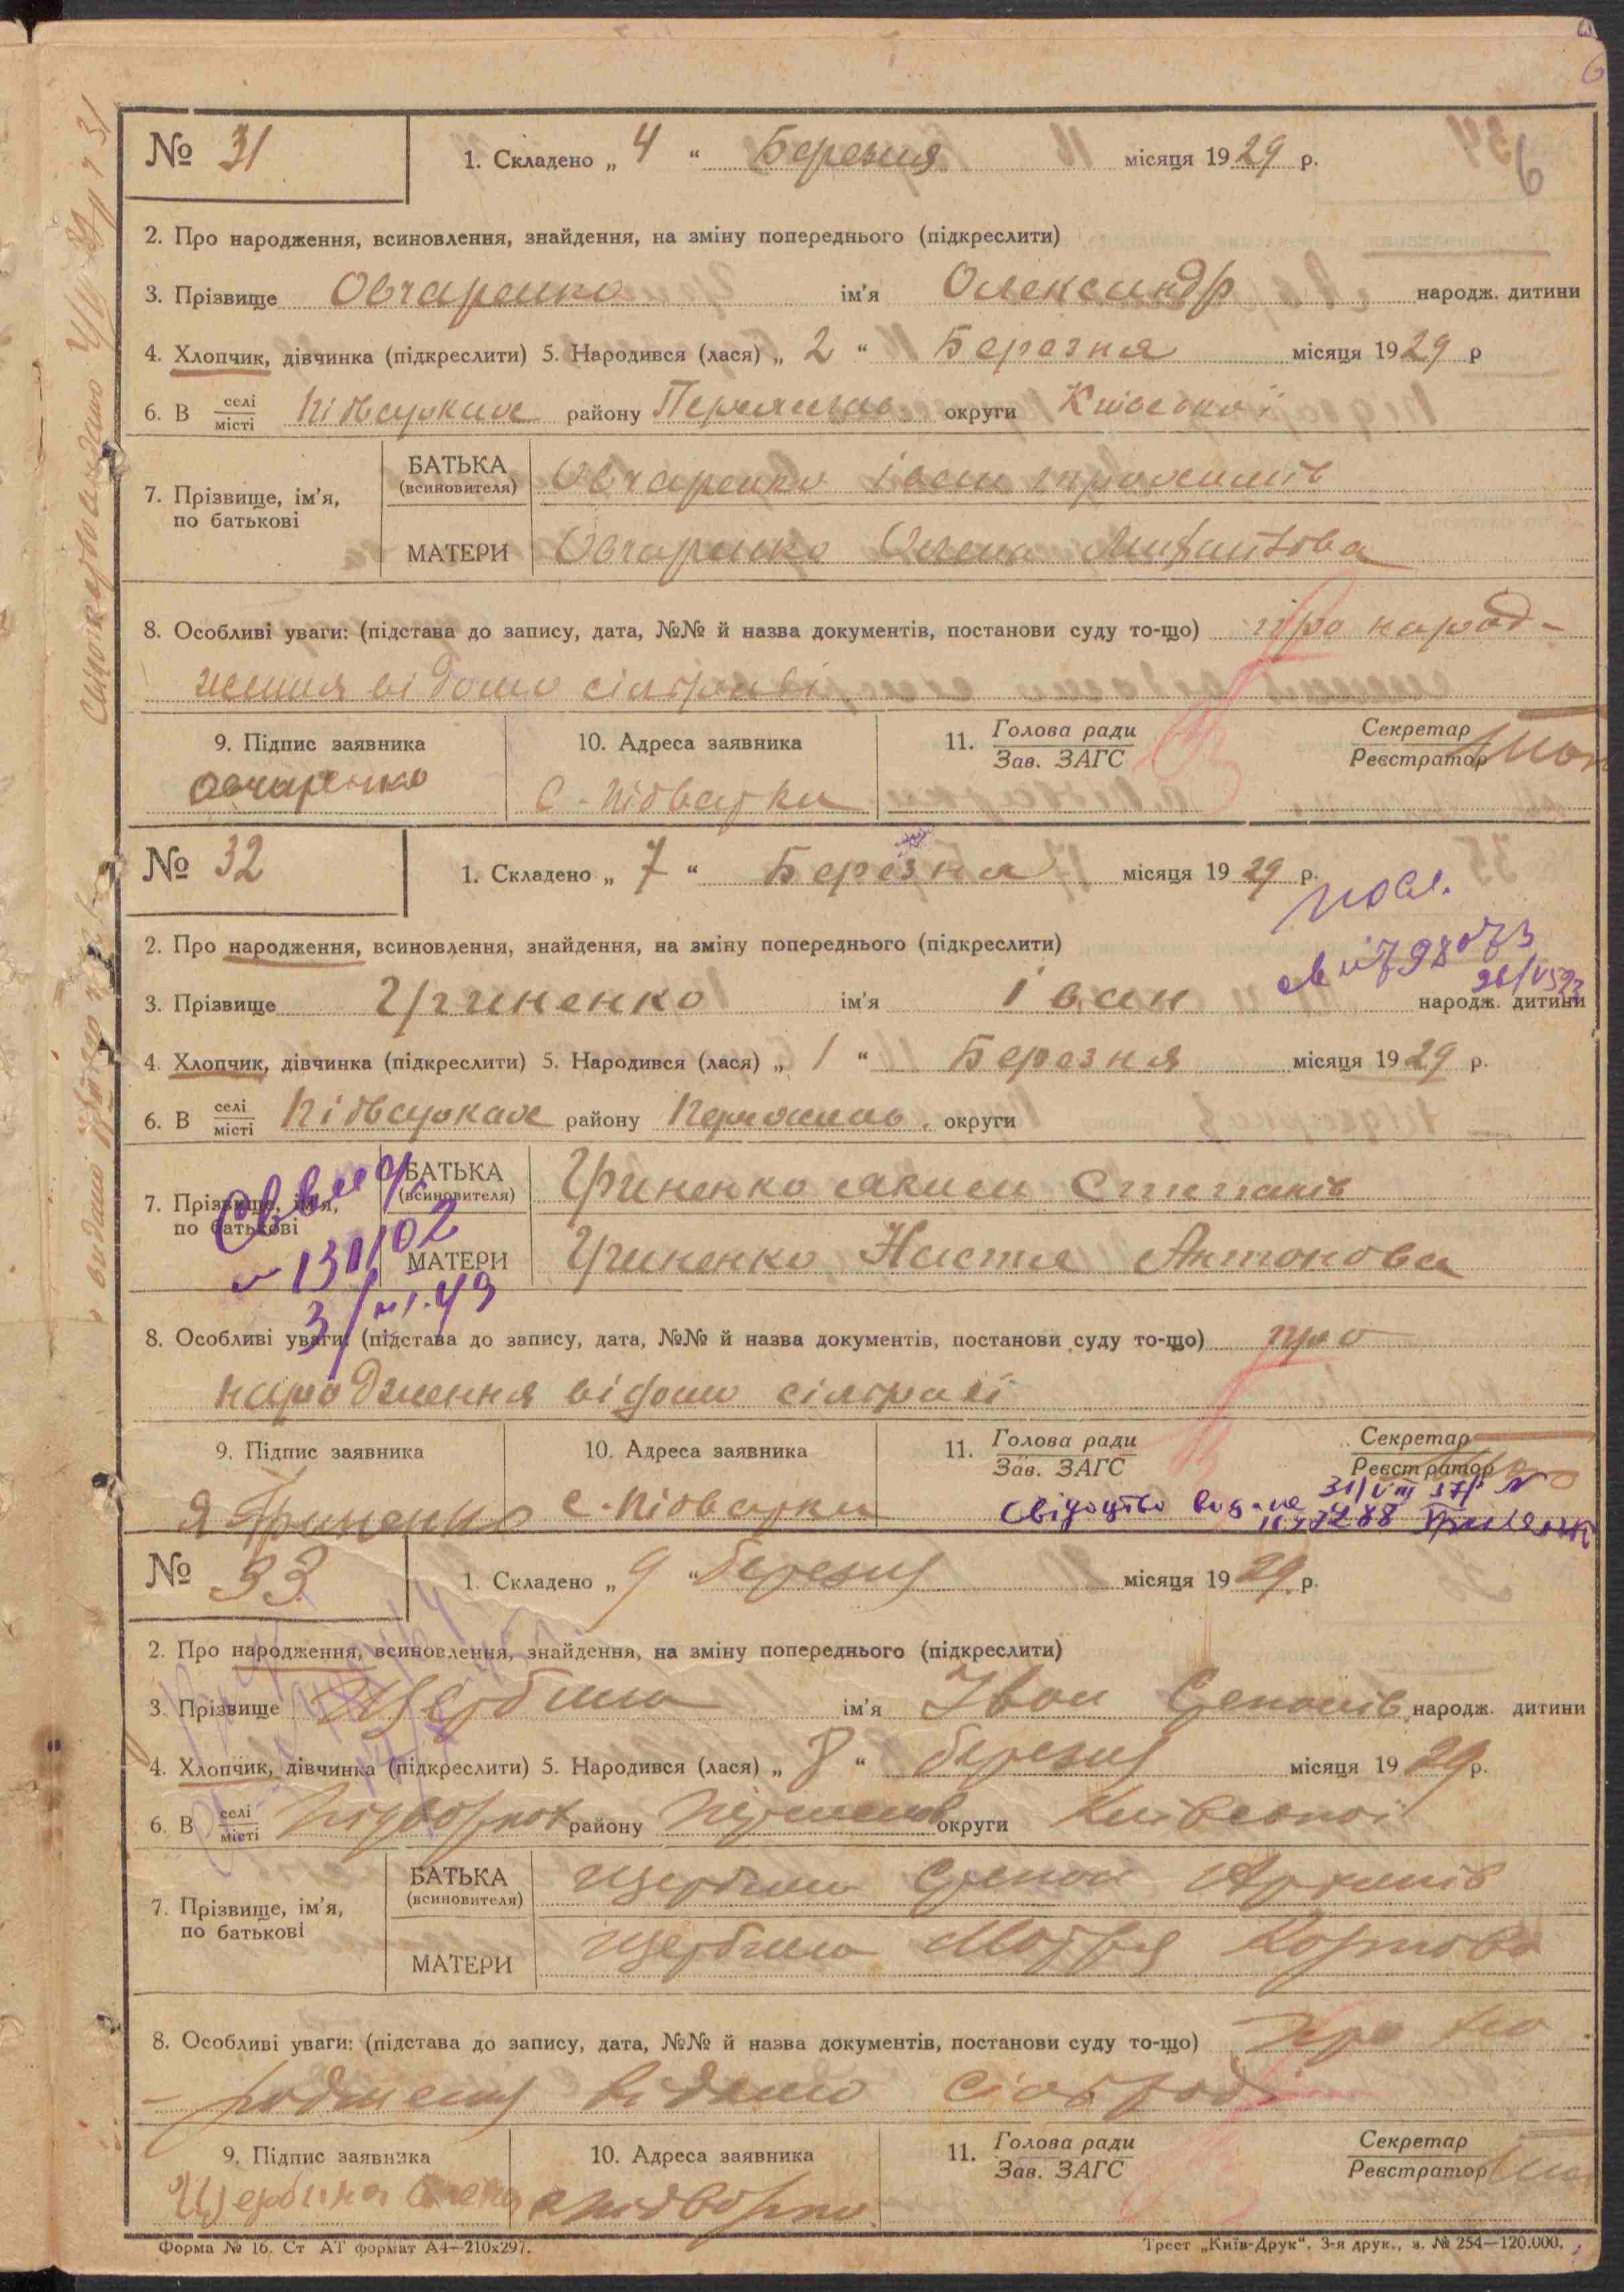 6
№ 31
1. Складено „ 4 “ Березня місяця 1929 р.
2. Про народження, всиновлення, знайдення, на зміну попереднього (підкреслити)
3. Прізвище Овчаренко ім'я Олександр народж. дитини
4. Хлопчик, дівчинка (підкреслити) 5. Народився (лася) „ 2 “ Березня місяця 1929 р
6. В селі/місті Підварках району Переяслав. округи Київської
7. Прізвище, ім'я, по батькові
БАТЬКА (всиновителя) Овчаренко Іван
МАТЕРИ Овчаренко Олена
8. Особливі уваги: (підстава до запису, дата, №№ й назва документів, постанови суду то-що) про народ-
ження відомо сільраді
9. Підпис заявника 10. Адреса заявника 11. Голова ради/Зав. ЗАГС Секретар/Реєстратор
Овчаренко с. Підварки
№ 32
1. Складено „ 7 “ Березня місяця 1929 р.
2. Про народження, всиновлення, знайдення, на зміну попереднього (підкреслити)
3. Прізвище Гриненко ім'я Іван народж. дитини
4. Хлопчик, дівчинка (підкреслити) 5. Народився (лася) „ 1 “ Березня місяця 1929 р.
6. В селі/місті Підварках району Переяслав. округи
7. Прізвище, ім'я, по батькові
БАТЬКА (всиновителя) Гриненко Яким Степанів
МАТЕРИ Гриненко Настя Антонова
8. Особливі уваги: (підстава до запису, дата, №№ й назва документів, постанови суду то-що) про
народження відомо сільраді
9. Підпис заявника 10. Адреса заявника 11. Голова ради/Зав. ЗАГС Секретар/Реєстратор
Я Гриненко с. Підварки
Свідоцтво видане 31/VIII 37р
№ 33
1. Складено „ 9 “ березня місяця 1929 р.
2. Про народження, всиновлення, знайдення, на зміну попереднього (підкреслити)
3. Прізвище Щербина ім'я Іван Степанів народж. дитини
4. Хлопчик, дівчинка (підкреслити) 5. Народився (лася) „ 8 “ березня місяця 1929 р.
6. В селі/місті Підварках району Переяслав округи Київської
7. Прізвище, ім'я, по батькові
БАТЬКА (всиновителя) Щербина Степан
МАТЕРИ Щербина Мотря Карпова
8. Особливі уваги: (підстава до запису, дата, №№ й назва документів, постанови суду то-що) про на
-родження відомо сільраді
9. Підпис заявника 10. Адреса заявника 11. Голова ради/Зав. ЗАГС Секретар/Реєстратор
Щербина Степан с. Підварки
Форма № 16. Ст АТ формат А4—210х297.
Трест „Київ-Друк“. 3-я друк., з. № 254—120.000.